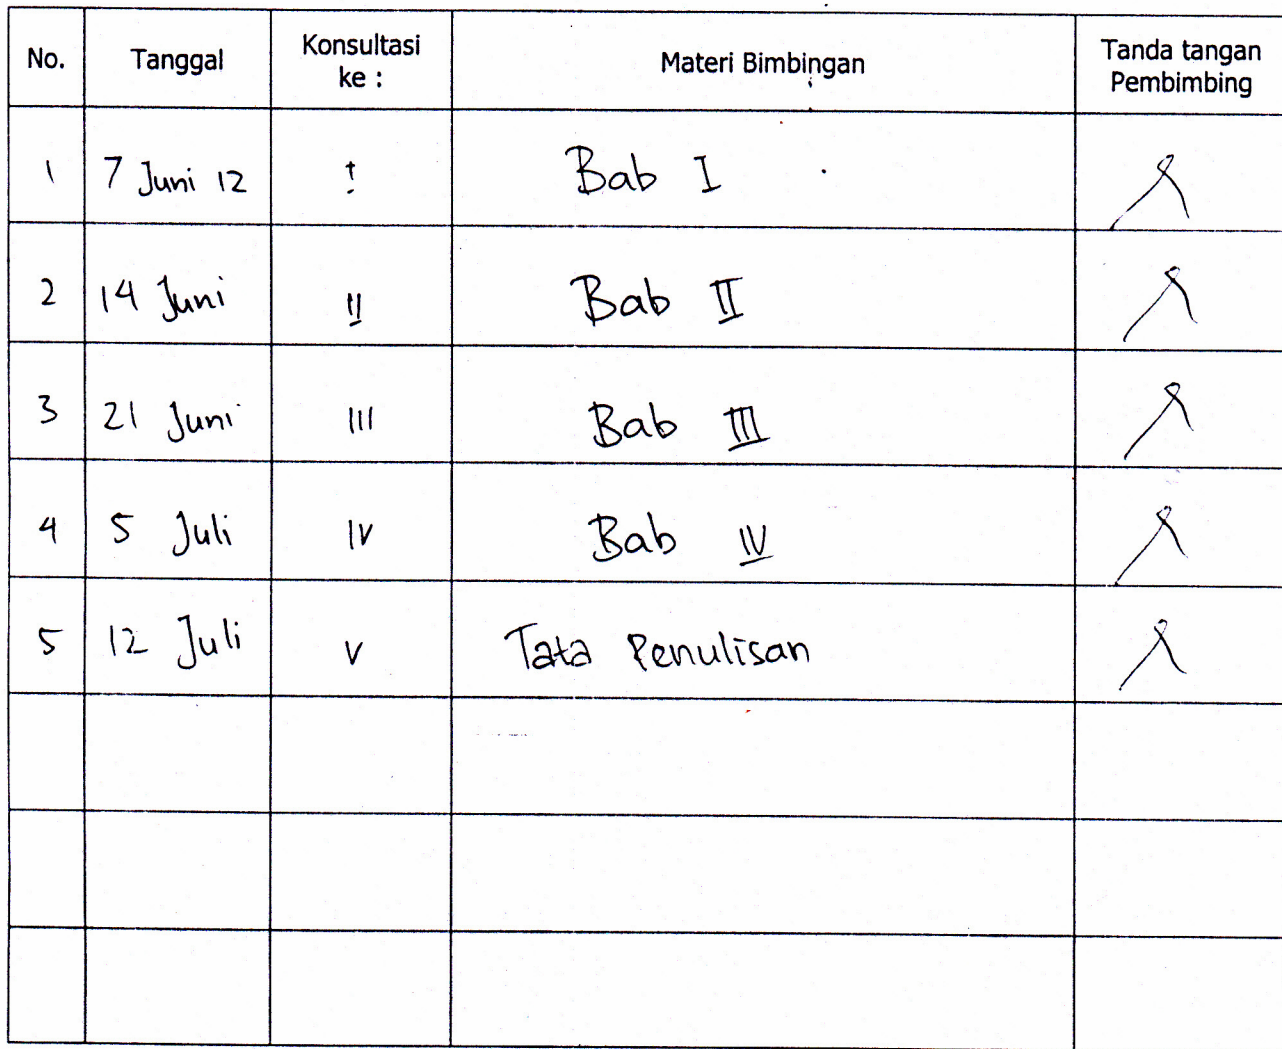 No. Tanggal Konsultasi ke : Materi Bimbingan Tanda tangan Pembimbing
1 7 Juni 12 I Bab I
2 14 Juni II Bab II
3 21 Juni III Bab III
4 5 Juli IV Bab IV
5 12 Juli V Tata Penulisan